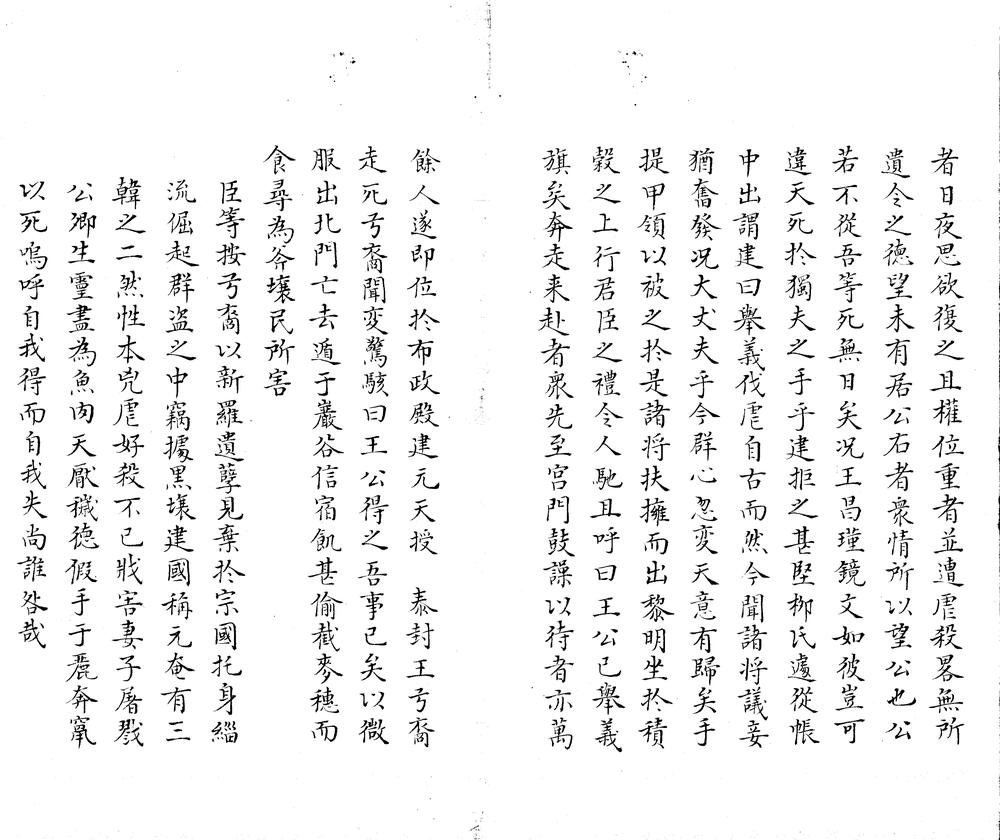 者日夜思欲復之且權位重者並遭虐殺畧無所
遺令之德望未有居公右者衆情所以望公也公
若不從吾等死無日矣况王昌瑾鏡文如彼豈可
違天死於獨夫之手乎建拒之甚堅栁氏遽從帳
中出謂建曰舉義伐虐自古而然今聞諸将議妾
猶奮發况大丈夫乎今群心忽変天意有歸矣手
提甲領以被之於是諸将扶擁而出黎明坐於積
穀之上行君臣之禮令人馳且呼曰王公已舉義
旗矣奔走来赴者衆先至宮門鼓譟以待者亦萬
餘人遂即位於布政殿建元天授　泰封王弓裔
走死弓裔聞変驚駭曰王公得之吾事已矣以微
服出北門亡去遁于巖谷信宿飢甚偷截麥穗而
食尋為斧壤民所害
臣等按弓裔以新羅遺孽見棄於宗國托身緇
流倔起群盗之中竊據黒壌建國稱元奄有三
韓之二然性本兇虐好殺不已戕害妻子屠戮
公卿生靈盡為魚肉天厭穢德假手于麗奔竄
以死嗚呼自我得而自我失尚誰咎哉